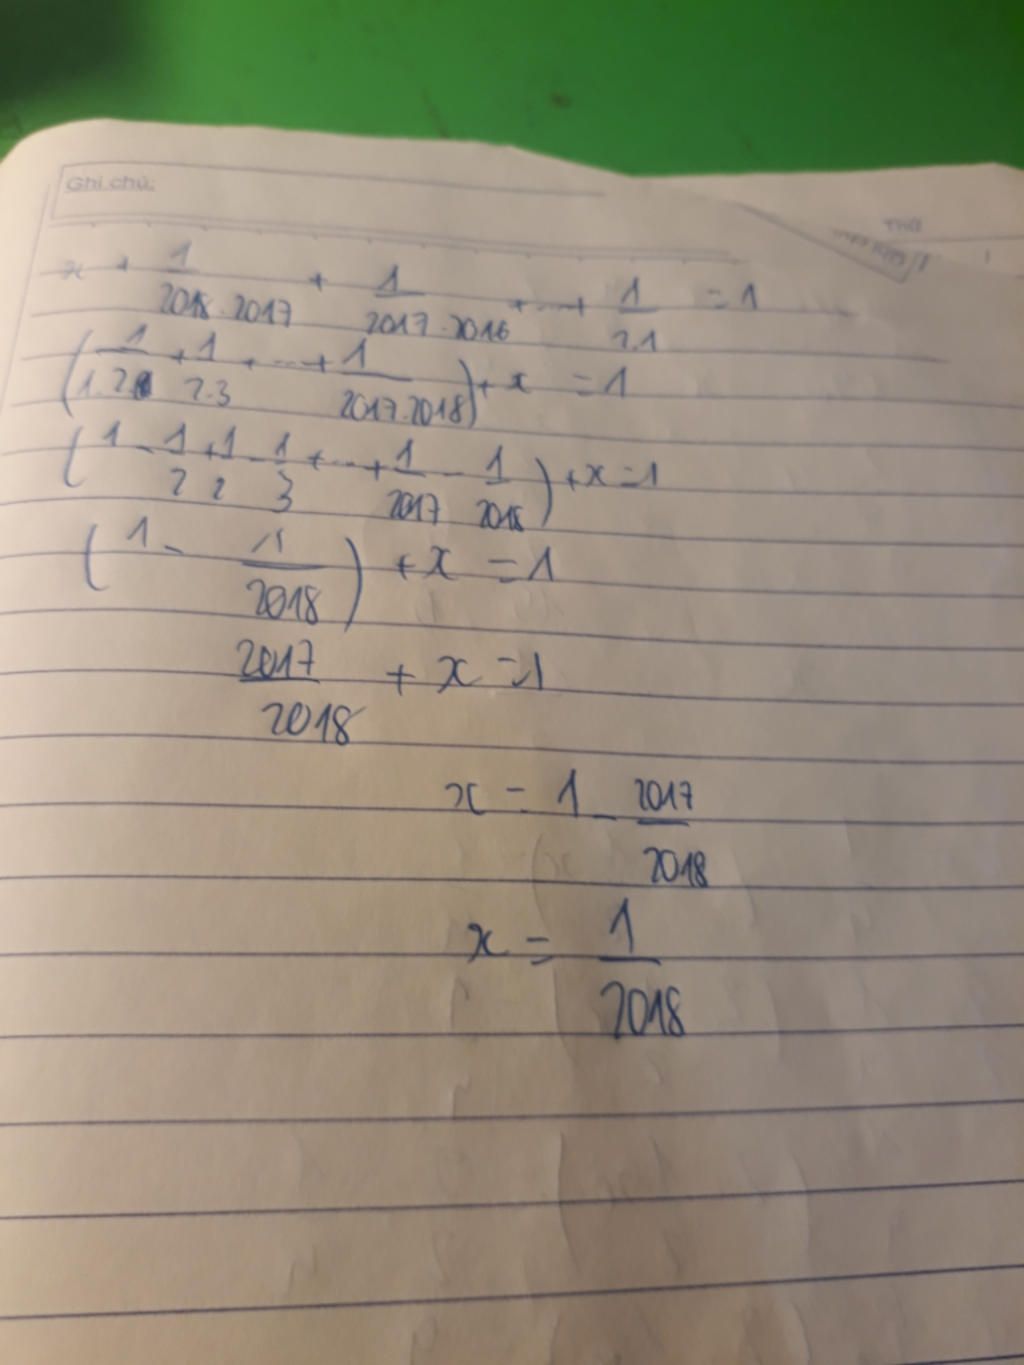 Ghi chú:
x + 1/2018.2017 + 1/2017.2016 + ... + 1/2.1 = 1
(1/1.2 + 1/2.3 + ... + 1/2017.2018) + x = 1
(1 - 1/2 + 1/2 - 1/3 + ... + 1/2017 - 1/2018) + x = 1
(1 - 1/2018) + x = 1
2017/2018 + x = 1
x = 1 - 2017/2018
x = 1/2018